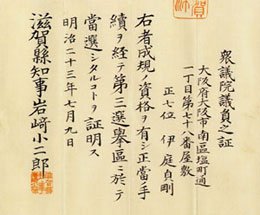 衆議院議員之証
大阪府大阪市南區塩町通
一丁目第七十八番屋敷
正七位 伊庭貞剛
右者成規ノ資格ヲ有シ正當ノ手
續ヲ経テ第三選擧區ニ於テ
當選シタルコトヲ証明ス
明治二十三年七月九日
滋賀縣知事岩崎小二郎